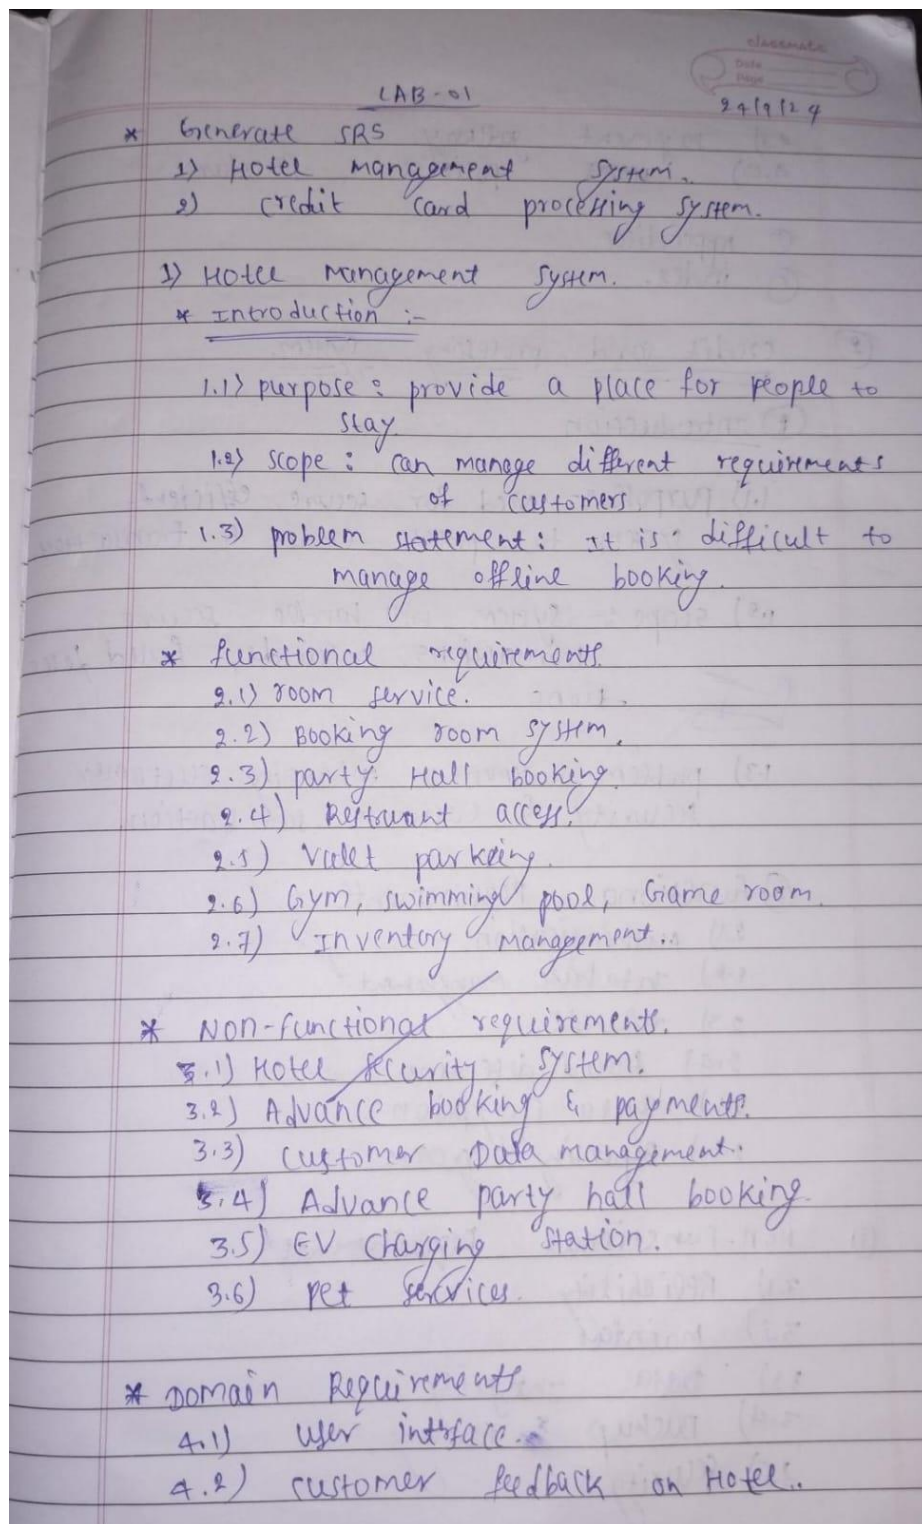 classmate
Date
Page
LAB-01
24/9/24
* Generate SRS
1) Hotel management system.
2) credit card processing system.
1) Hotel management system.
* Introduction :-
1.1) purpose : provide a place for people to
stay.
1.2) scope : can manage different requirements
of customers
1.3) problem statement : It is difficult to
manage offline booking.
* functional requirements.
2.1) room service.
2.2) Booking room system.
2.3) party Hall booking.
2.4) Restruant access.
2.5) Valet parking.
2.6) Gym, swimming pool, Game room.
2.7) Inventory management.
* Non-functional requirements.
3.1) Hotel security system.
3.2) Advance booking & payments.
3.3) customer Data management.
3.4) Advance party hall booking.
3.5) EV charging station.
3.6) pet services.
* Domain Requirements
4.1) user intrface.
4.2) customer feedback on Hotel.